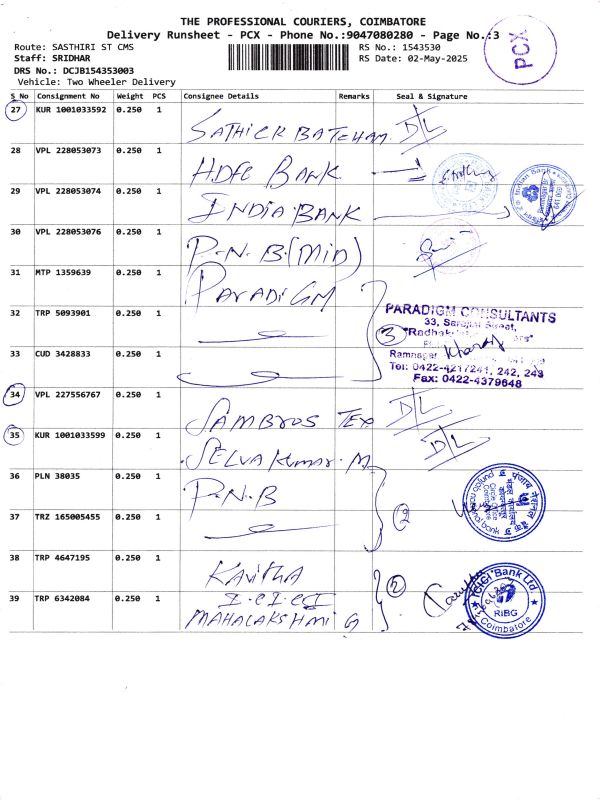 THE PROFESSIONAL COURIERS, COIMBATORE
Delivery Runsheet - PCX - Phone No.:9047080280 - Page No.:3
PCX
Route: SASTHIRI ST CMS
RS No.: 1543530
Staff: SRIDHAR
RS Date: 02-May-2025
DRS No.: DCJB154353003
Vehicle: Two Wheeler Delivery
S No Consignment No Weight PCS Consignee Details Remarks Seal & Signature
27 KUR 1001033592 0.250 1 SATHICK BATCHAM D/L
28 VPL 228053073 0.250 1 HDFC BANK
29 VPL 228053074 0.250 1 INDIA BANK
Indian Bank
30 VPL 228053076 0.250 1 P.N.B.(MID)
31 MTP 1359639 0.250 1 PARADIGM
32 TRP 5093901 0.250 1
PARADIGM CONSULTANTS
33,
3
33 CUD 3428833 0.250 1
Ramnagar
Tel: 0422-4217241, 242, 243
Fax: 0422-4379648
34 VPL 227556767 0.250 1 SAMBROS TEX D/L
35 KUR 1001033599 0.250 1 SELVA KUMAR. M D/L
36 PLN 38035 0.250 1 P.N.B
37 TRZ 165005455 0.250 1
2
punjab national bank
Circle Office
Coimbatore
38 TRP 4647195 0.250 1 KAVITHA
2
39 TRP 6342084 0.250 1 I.C.I.C.I
MAHALAKSHMI G
ICICI Bank Ltd
RIBG
Coimbatore